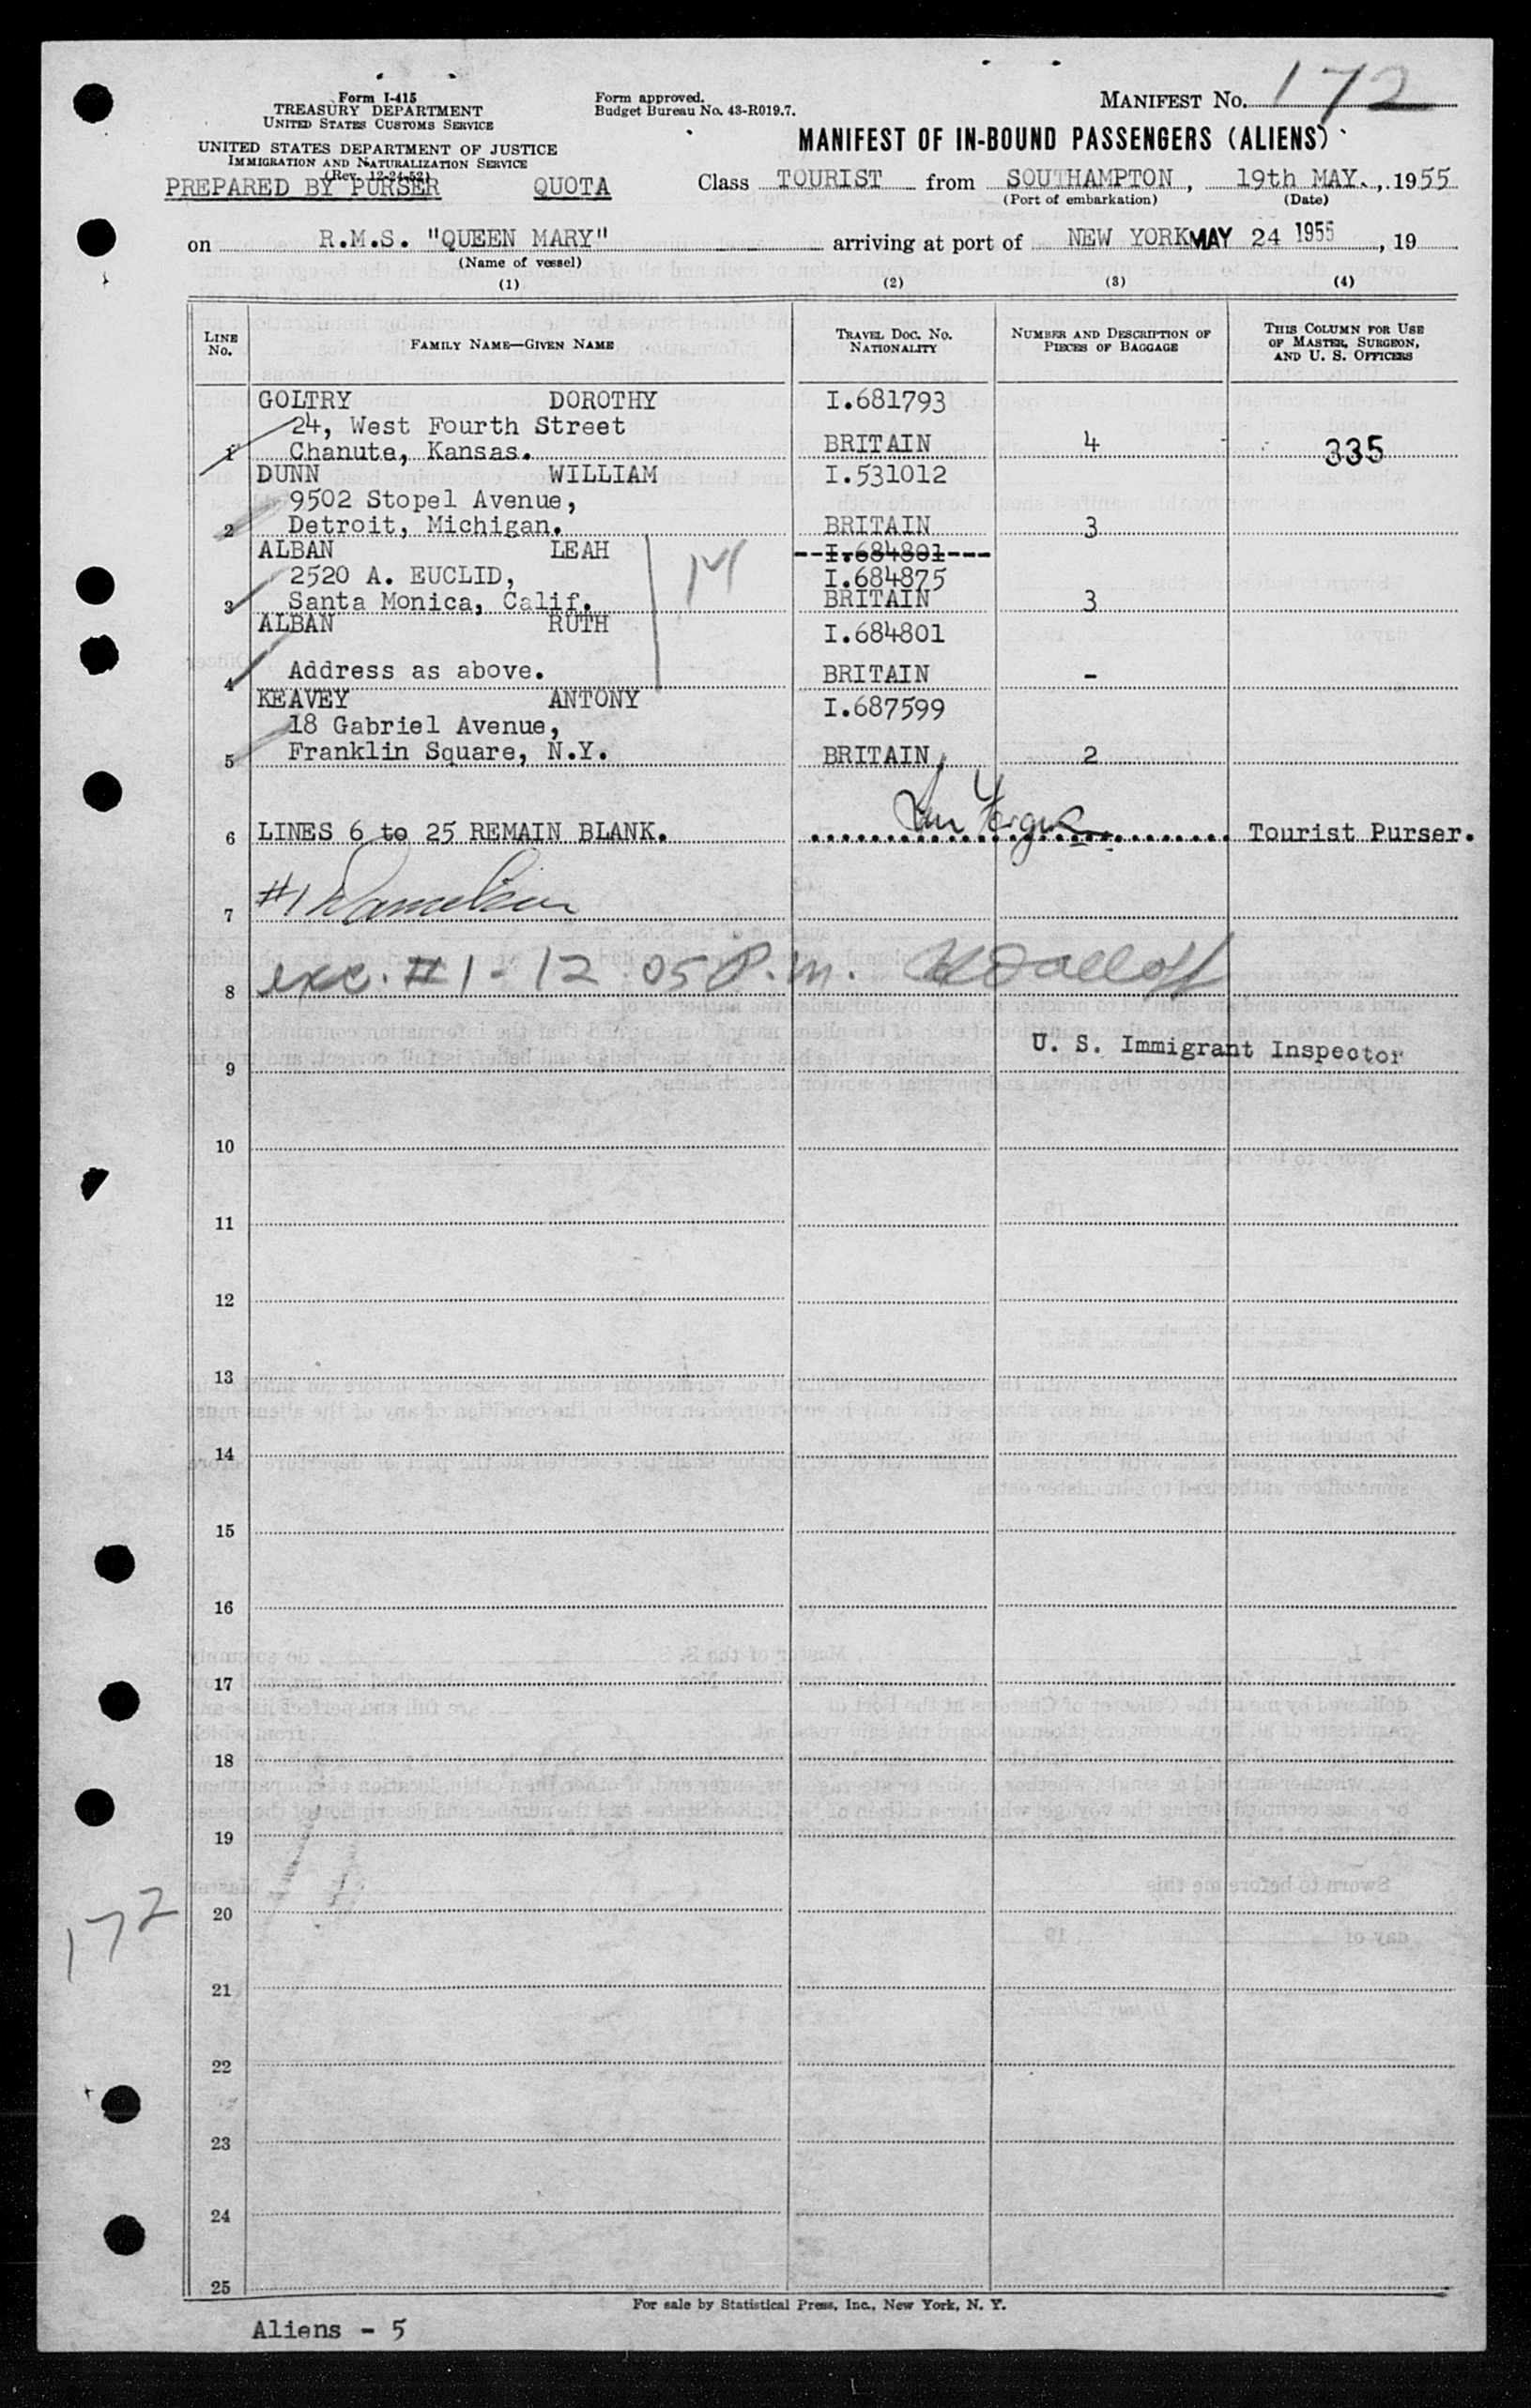 Form I-415
TREASURY DEPARTMENT
UNITED STATES CUSTOMS SERVICE
UNITED STATES DEPARTMENT OF JUSTICE
IMMIGRATION AND NATURALIZATION SERVICE
(Rev. 12-24-52)
PREPARED BY PURSER QUOTA
Form approved.
Budget Bureau No. 43-R019.7.
MANIFEST NO. 172
MANIFEST OF IN-BOUND PASSENGERS (ALIENS)
Class TOURIST from SOUTHAMPTON, 19th MAY., 1955
(Port of embarkation) (Date)
on R.M.S. "QUEEN MARY" arriving at port of NEW YORK MAY 24 1955, 19
(Name of vessel)
(1) (2) (3) (4)
LINE NO. FAMILY NAME—GIVEN NAME TRAVEL DOC. NO. NATIONALITY NUMBER AND DESCRIPTION OF PIECES OF BAGGAGE THIS COLUMN FOR USE OF MASTER, SURGEON, AND U. S. OFFICERS
GOLTRY DOROTHY I.681793
24, West Fourth Street
1 Chanute, Kansas. BRITAIN 4 335
DUNN WILLIAM I.531012
9502 Stopel Avenue,
2 Detroit, Michigan. BRITAIN 3
ALBAN LEAH --I.684801---
2520 A. EUCLID, I.684875
3 Santa Monica, Calif. BRITAIN 3
ALBAN RUTH I.684801
4 Address as above. BRITAIN -
KEAVEY ANTONY I.687599
18 Gabriel Avenue,
5 Franklin Square, N.Y. BRITAIN 2
6 LINES 6 to 25 REMAIN BLANK. Tourist Purser.
7 #1
8 exc. #1 - 12:05 P.m.
U. S. Immigrant Inspector
9
10
11
12
13
14
15
16
17
18
19
172
20
21
22
23
24
25
For sale by Statistical Press, Inc., New York, N. Y.
Aliens - 5